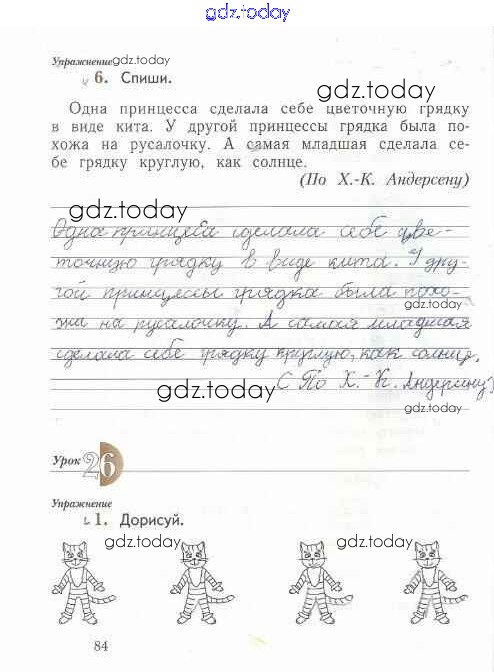 gdz.today
Упражнение gdz.today
6. Спиши.
gdz.today
Одна принцесса сделала себе цветочную грядку
в виде кита. У другой принцессы грядка была по-
хожа на русалочку. А самая младшая сделала се-
бе грядку круглую, как солнце.
(По Х.-К. Андерсену)
gdz.today
Одна принцесса сделала себе цве-
точную грядку в виде кита. У дру-
гой принцессы грядка была похо-
gdz.today
жа на русалочку. А самая младшая
сделала себе грядку круглую, как солнце.
(По Х.-К. Андерсену)
gdz.today
gdz.today
Урок 26
Упражнение
1. Дорисуй.
gdz.today
gdz.today
84